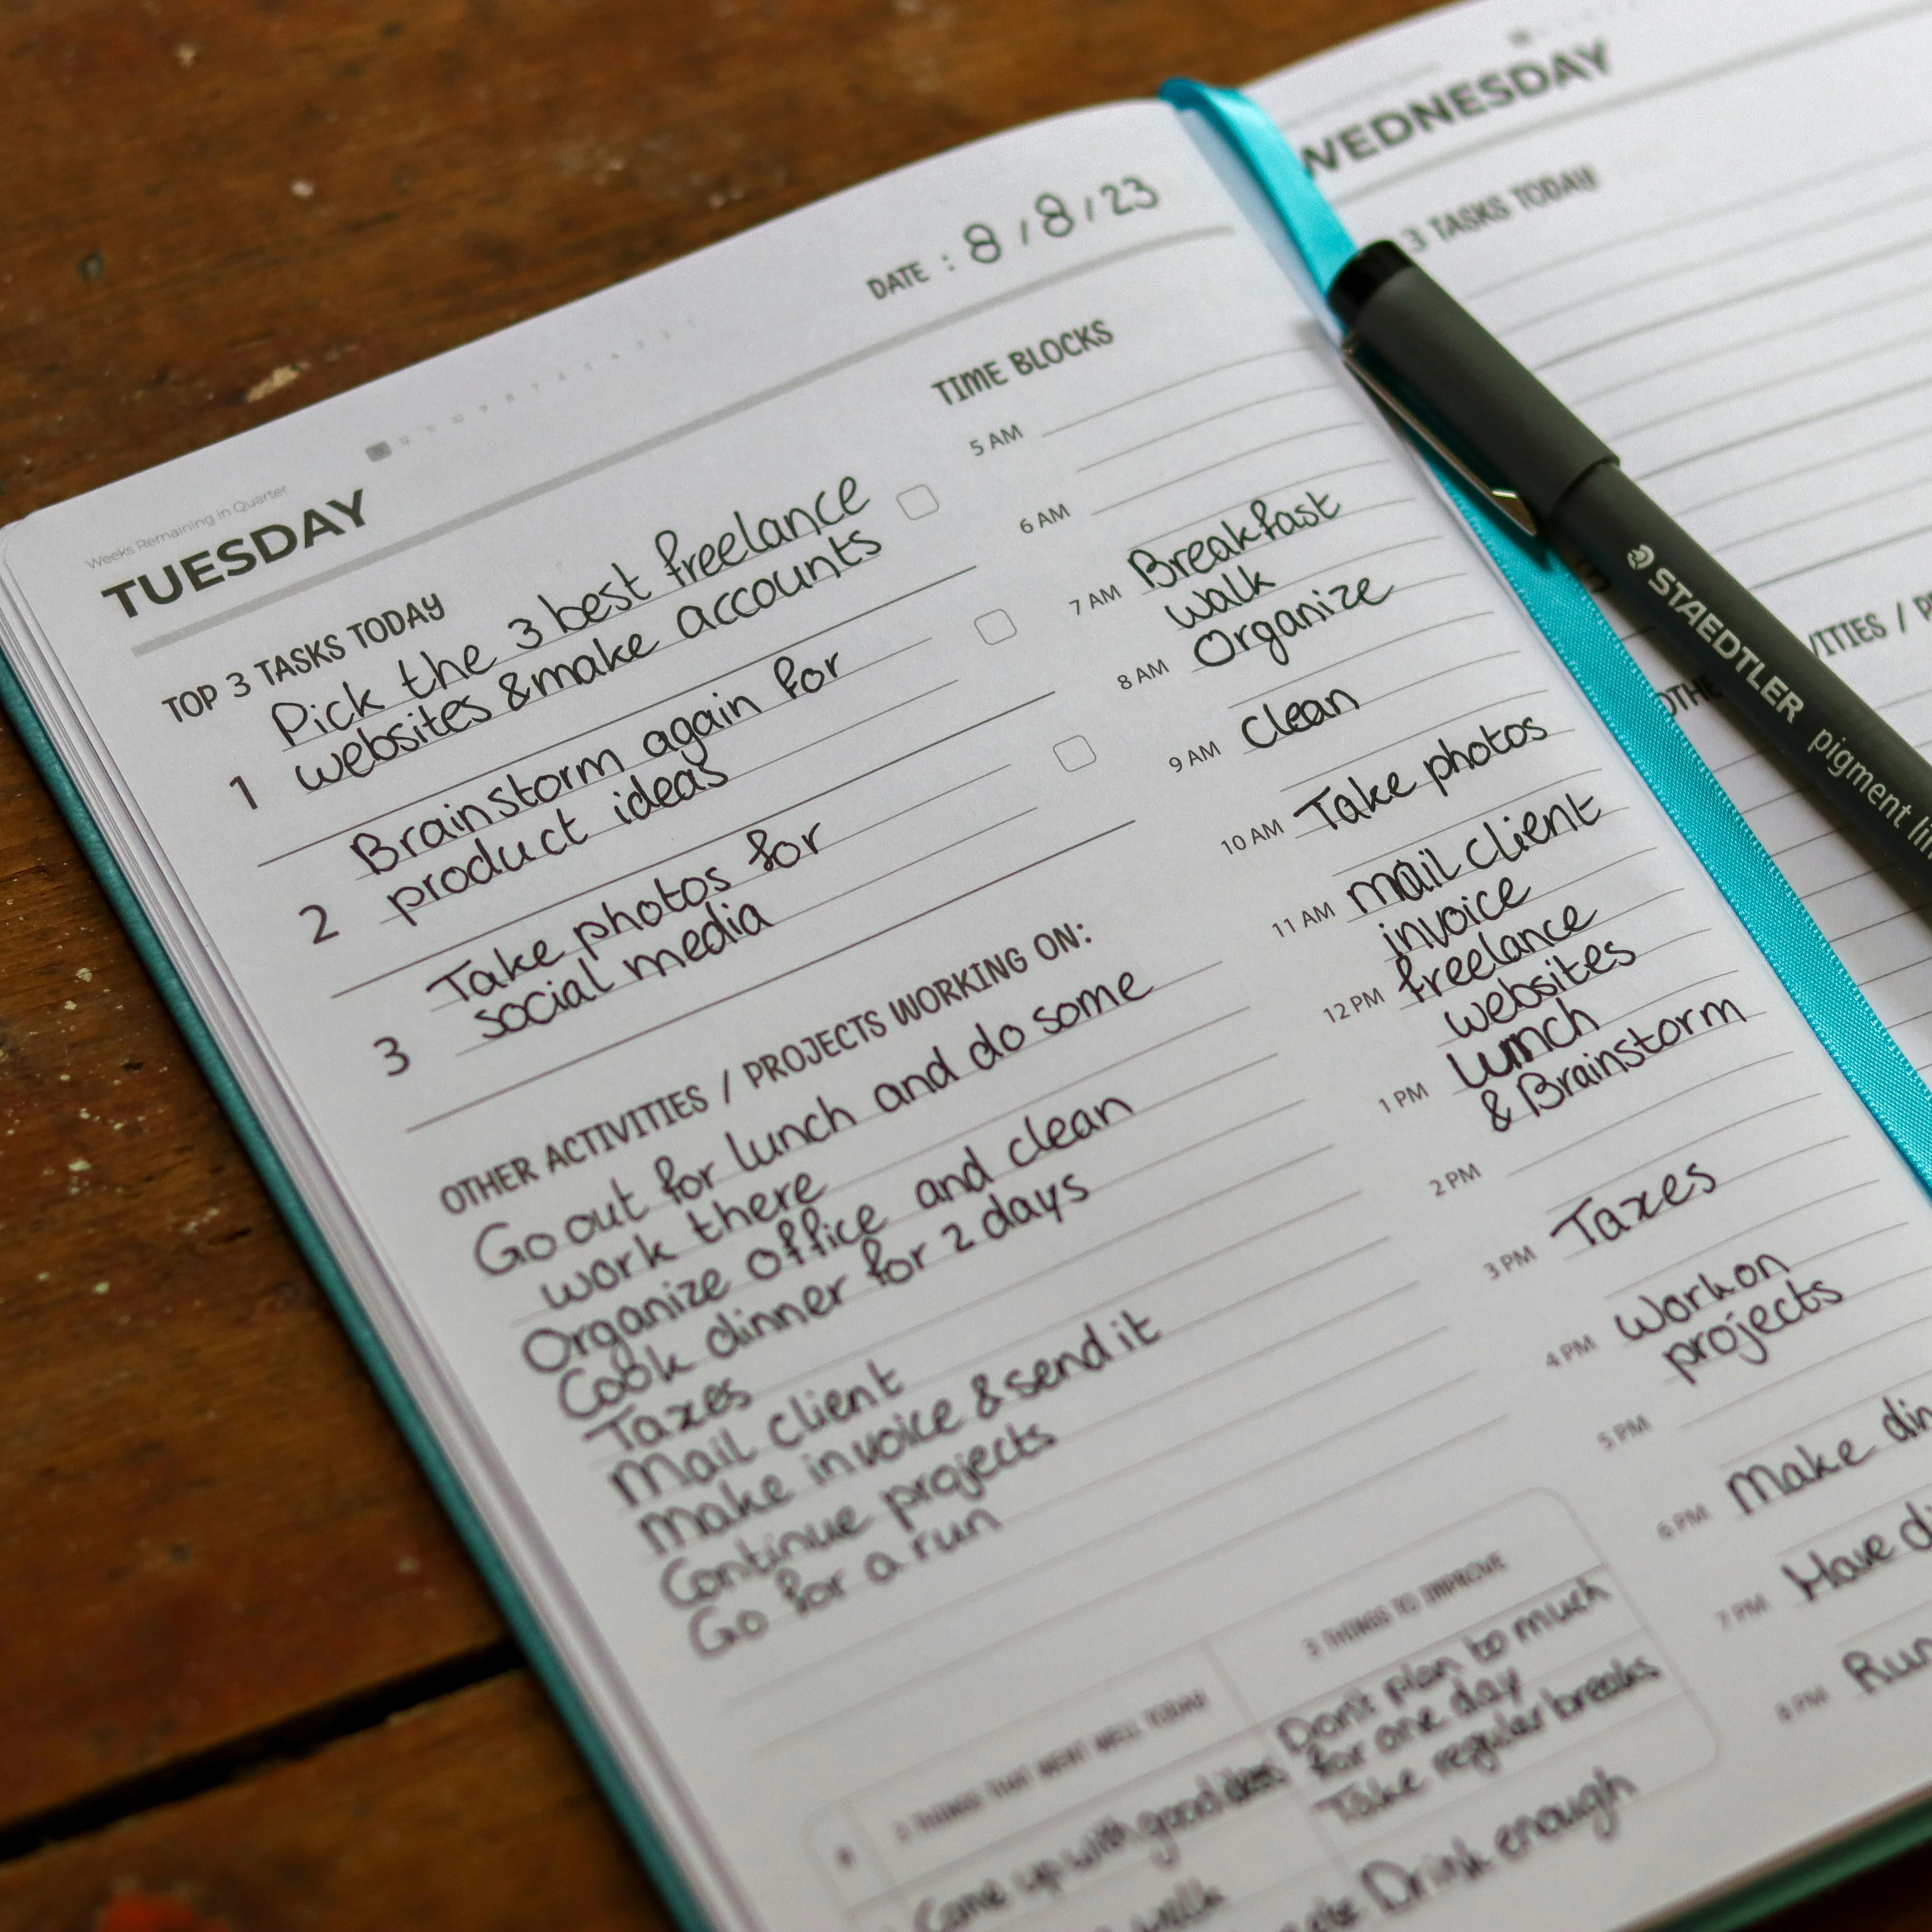 Weeks Remaining in Quarter
TUESDAY
DATE : 8 / 8 / 23
TOP 3 TASKS TODAY
Pick the 3 best freelance
1 websites & make accounts
Brainstorm again for
2 product ideas
Take photos for
3 social media
OTHER ACTIVITIES / PROJECTS WORKING ON:
Go out for lunch and do some
work there
Organize office and clean
Cook dinner for 2 days
Taxes
Mail client
Make invoice & send it
Continue projects
Go for a run
3 THINGS THAT WENT WELL TODAY
Come up with good ideas
walk
3 THINGS TO IMPROVE
Don't plan to much
for one day
Take regular breaks
Drink enough
TIME BLOCKS
5 AM
6 AM
7 AM Breakfast
walk
8 AM Organize
9 AM Clean
10 AM Take photos
11 AM mail client
invoice
12 PM freelance
websites
1 PM lunch
& Brainstorm
2 PM
3 PM Taxes
4 PM Work on
projects
5 PM
6 PM Make din
7 PM Have d
8 PM Run
WEDNESDAY
3 TASKS TODAY
VITIES / P
OTHE
STAEDTLER pigment lin